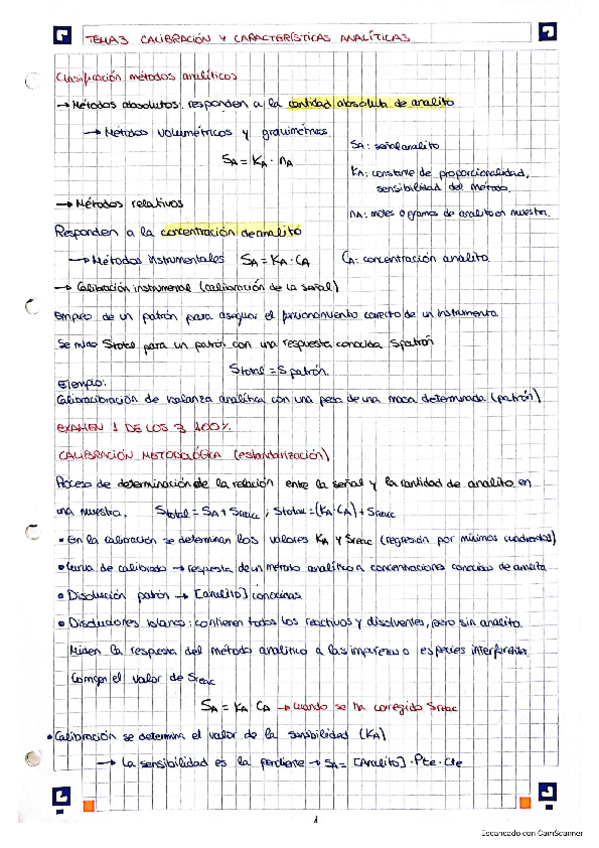 TEMA 3 CALIBRACIÓN Y CARACTERÍSTICAS ANALÍTICAS
Clasificación métodos analíticos
→ Métodos absolutos: responden a la cantidad absoluta de analito
→ Métodos volumétricos y gravimétricos
SA = KA · nA
SA: señal analito
KA: constante de proporcionalidad,
sensibilidad del método.
nA: moles o gramos de analito en muestra.
→ Métodos relativos
Responden a la concentración de analito
→ Métodos instrumentales SA = KA · CA
CA: concentración analito.
→ Calibración instrumental (calibración de la señal)
Empleo de un patrón para asegurar el funcionamiento correcto de un instrumento
Se mide Stotal para un patrón con una respuesta conocida Spatrón
Stotal = Spatrón.
Ejemplo:
de balanza analítica con una pesa de una masa determinada (patrón)
EXAMEN 1 DE LOS 3 100%
CALIBRACIÓN METODOLÓGICA (estandarización)
Proceso de determinación de la relación entre la señal y la cantidad de analito en
una muestra. Stotal = SA + Sreac ; Stotal = (KA · CA) + Sreac
• En la calibración se determinan los valores KA y Sreac (regresión por mínimos cuadrados)
• Curva de calibrado → respuesta de un método analítico a concentraciones conocidas de analito
• Disolución patrón → [Analito] conocidas.
• Disoluciones blanco: contienen todos los reactivos y disolventes, pero sin analito.
Miden la respuesta del método analítico a las impurezas o especies interferentes.
Corrigen el valor de Sreac
SA = KA CA → Cuando se ha corregido Sreac
• Calibración se determina el valor de la sensibilidad (KA)
→ La sensibilidad es la pendiente → SA = [Analito] · Pte · Cte
1
Escaneado con CamScanner